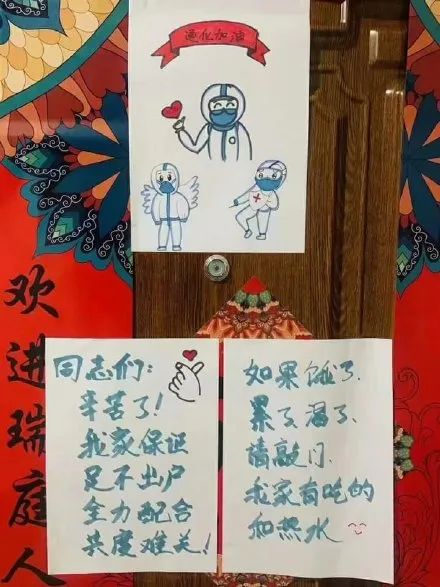 通化加油
欢进瑞庭人
同志们:
辛苦了!
我家保证
足不出户
全力配合
共度难关!
如果饿了、
累了渴了、
请敲门.
我家有吃的
和热水